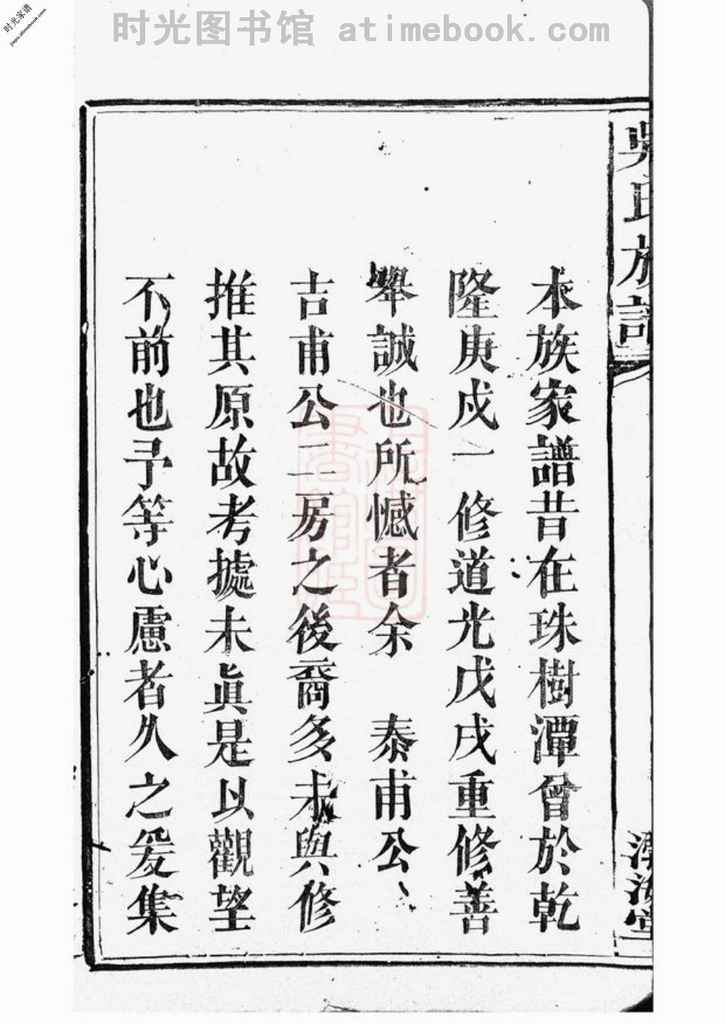 时光图书馆 atimebook.com
时光家谱
吳氏族譜
本族家譜昔在珠樹潭曾於乾
隆庚戌一修道光戊戌重修善
舉誠也所憾者余 泰甫公
吉甫公二房之後裔多未與修
推其原故考據未眞是以觀望
不前也予等心慮者久之爰集